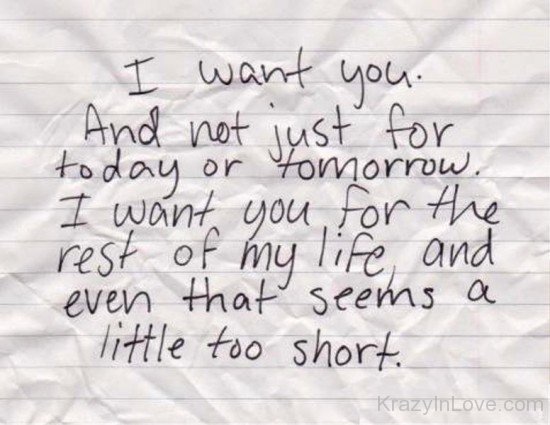 I want you.
And not just for
today or tomorrow.
I want you for the
rest of my life, and
even that seems a
little too short.
KrazyInLove.com